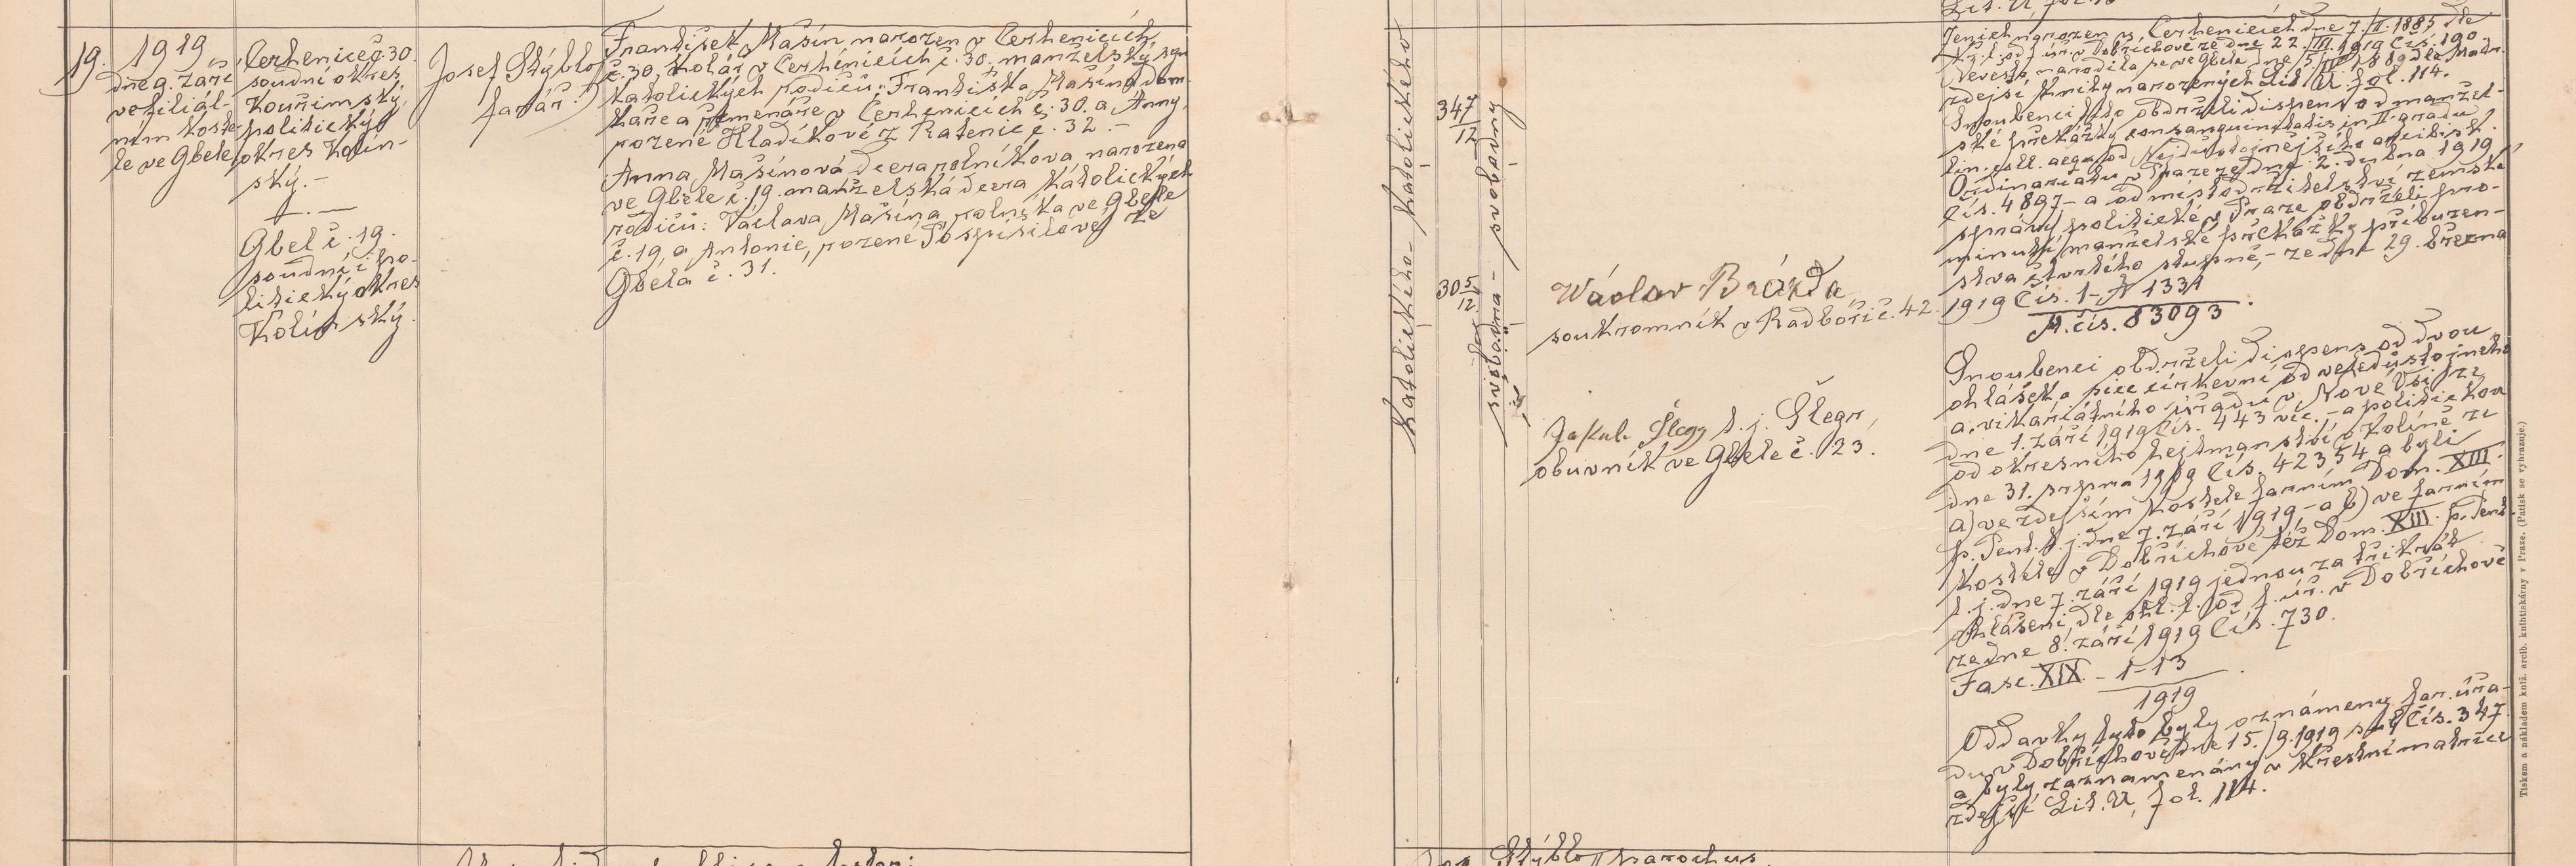 19.
1919
dne 9. září
ve filiál-
ním koste-
le ve Gbele
Cerhenice č. 30.
soudní okres
Kouřimský,
politický
okres Kolín-
ský.-
Gbel č. 19.
soudní i po-
litický okres
Kolínský.
Josef Stýblo
farář.
František Mašín narozen v Cerhenicích
č. 30, kolář v Cerhenicích č. 30. manželský syn
katolických rodičů: Františka Mašína, dom-
káře a řemenáře v Cerhenicích č. 30. a Anny,
rozené Hladíkové z Ratenic č. 32.-
Anna Mašínová dcera rolníkova narozena
ve Gbele č. 19. manželská dcera katolických
rodičů: Václava Mašína, rolníka ve Gbele
č. 19, a Antonie, rozené Pospíšilové ze
Gbela č. 31.
Katolického - Katolického
347/12
305/12
svobodna - svobodný
Wáclav Brázda
soukromník v Radboři č. 42.
Jakub Šlegr t. j. Šlegr,
obuvník ve Gbele č. 23.
Ženich narozen v Cerhenicích dne 7./II. 1885 dle
kř. l. od f. úř. v Dobřichově ze dne 22./III. 1919 čís. 190.
Nevěsta narodila se ve Gbele dne 5./III. 1889 dle
zdejší knihy narozených Lit. U. fol. 114.
Snoubenci tito obdrželi dispens od manžel-
ské překážky consanguinitatis in II. gradu
lin. coll. aequ. od Nejdůstojnějšího arcibisk.
Ordinariátu v Praze ze dne 2. dubna 1919
čís. 4897 - a od místodržitelství zemské
správy politické v Praze obdrželi pro-
minutí manželské překážky příbuzen-
stva čtvrtého stupně,- ze dne 29. března
1919 Čís. 1-A 1331
A. čís. 83093.
Snoubenci obdrželi dispens od dvou
ohlášek a, sice církevní od veledůstojného
a. vikariátního úřadu v Nové Vsi ze
dne 1. září 1919 čís. 443 vic.,- a politickou
od okresního hejtmanství v Kolíně ze
dne 31. srpna 1919 čís. 42354 a byli
a) ve zdejším kostele farním Dom. XIII.
p. Pent. t. j. dne 7. září 1919 - a b) ve farním
kostele v Dobřichově též Dom. XIII. p. Pent.
t. j. dne 7. září 1919 jednou za třikrát
ohlášeni, dle ohl. l. od f. úř. v Dobřichově
ze dne 8. září 1919 Čís. 730.
Fasc. XIX. - 1-13
1919
Oddavky tyto byly oznámeny far. úřa-
du v Dobřichově dne 15./9. 1919 sub Čís. 347
a byly zaznamenány v křestní matrice
zdejší Lit. U, fol. 114.
Tiskem a nákladem kníž. arcib. knihtiskárny v Praze. (Patisk se vyhrazuje.)
Stýblo parochus.